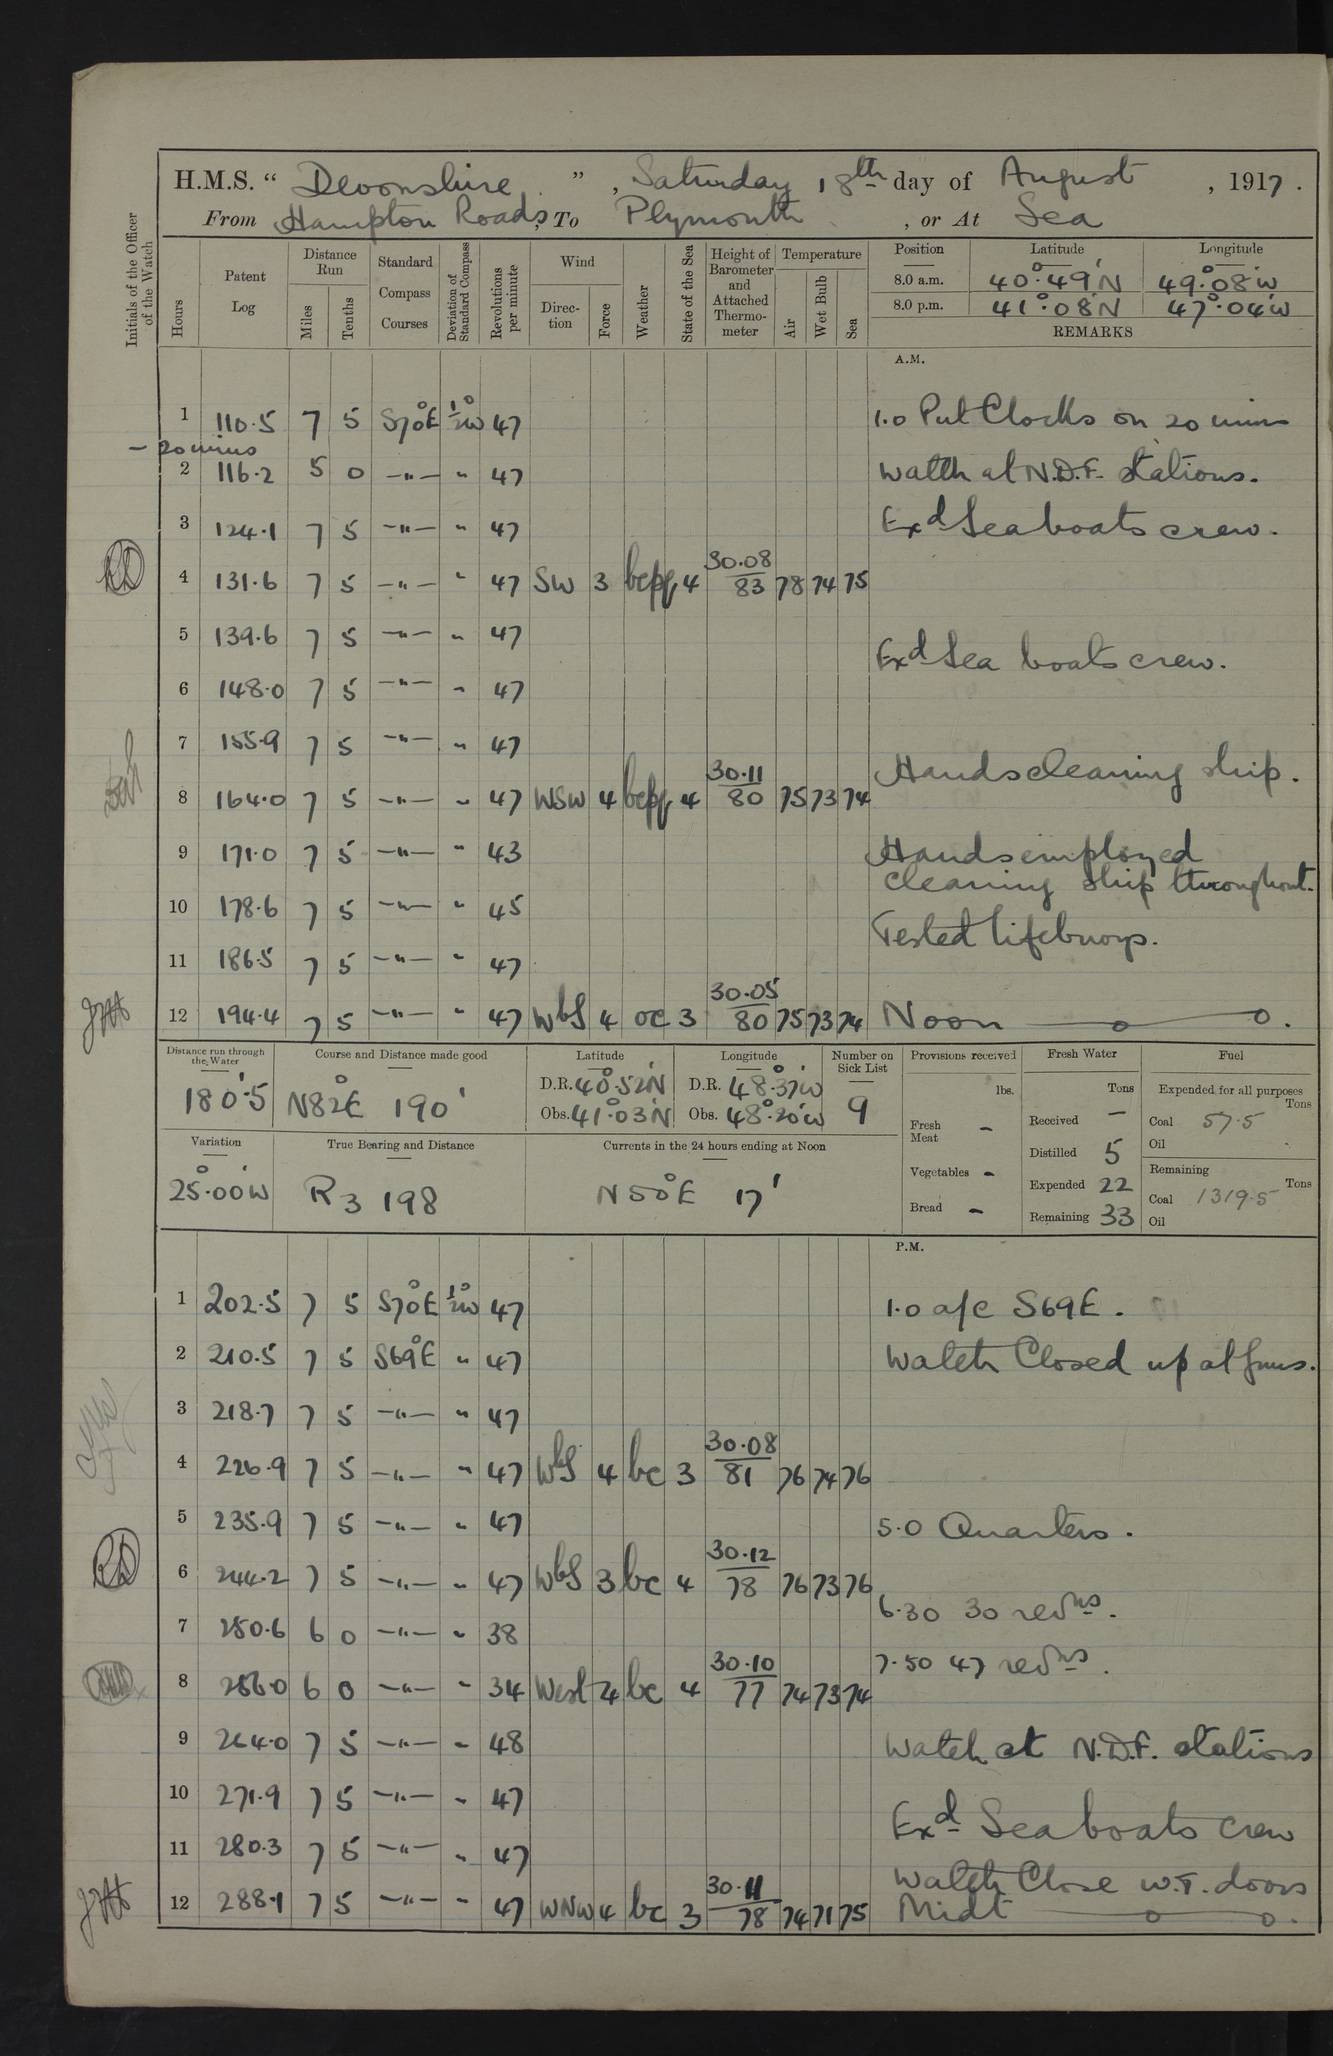 H.M.S. “ Devonshire ” , Saturday 18th day of August , 1917 .
From Hampton Roads, To Plymouth , or At Sea
Initials of the Officer of the Watch
Hours
Patent Log
Distance Run
Miles
Tenths
Standard Compass Courses
Deviation of Standard Compass
Revolutions per minute
Wind
Direction
Force
Weather
State of the Sea
Height of Barometer and Attached Thermometer
Temperature
Air
Wet Bulb
Sea
Position Latitude Longitude
8.0 a.m. 40°.49'N 49°.08'W
8.0 p.m. 41°.08'N 47°.04'W
REMARKS
A.M.
1 110.5 7 5 S70°E ½°W 47 1.0 Put Clocks on 20 mins
- 20 mins
2 116.2 5 0 -"- " 47 Watch at N.D.F. stations.
3 124.1 7 5 -"- " 47 Exd Seaboats crew.
RD 4 131.6 7 5 -"- " 47 SW 3 bcpq 4 30.08/83 78 74 75
5 139.6 7 5 -"- " 47
Exd Sea boats crew.
6 148.0 7 5 -"- " 47
7 155.9 7 5 -"- " 47
Hands cleaning ship.
8 164.0 7 5 -"- " 47 WSW 4 bcpq 4 30.11/80 75 73 74
9 171.0 7 5 -"- " 43 Hands employed
cleaning ship throughout.
10 178.6 7 5 -"- " 45
Tested lifebuoys.
11 186.5 7 5 -"- " 47
12 194.4 7 5 -"- " 47 WbS 4 oc 3 30.05/80 75 73 74 Noon
Distance run through the Water
180'.5
Course and Distance made good
N82°E 190'
Latitude
D.R. 40°.52'N
Obs. 41°.03'N
Longitude
D.R. 48°.37'W
Obs. 48°.20'W
Number on Sick List
9
Variation
25°.00'W
True Bearing and Distance
R3 198
Currents in the 24 hours ending at Noon
N50°E 17'
Provisions received
lbs.
Fresh Meat -
Vegetables -
Bread -
Fresh Water
Tons
Received -
Distilled 5
Expended 22
Remaining 33
Fuel
Expended for all purposes
Tons
Coal 57.5
Oil
Remaining
Tons
Coal 1319.5
Oil
P.M.
1 202.5 7 5 S70°E ½°W 47 1.0 a/c S69E.
2 210.5 7 5 S69°E " 47 Watch Closed up at Guns.
3 218.7 7 5 -"- " 47
4 226.9 7 5 -"- " 47 WbS 4 bc 3 30.08/81 76 74 76
5 235.9 7 5 -"- " 47 5.0 Quarters.
RD 6 244.2 7 5 -"- " 47 WbS 3 bc 4 30.12/78 76 73 76
6.30 30 revns.
7 250.6 6 0 -"- " 38
7.50 47 revns.
8 256.0 6 0 -"- " 34 West 4 bc 4 30.10/77 74 73 74
9 264.0 7 5 -"- " 48 Watch at N.D.F. stations
10 271.9 7 5 -"- " 47
Exd Seaboats crew
11 280.3 7 5 -"- " 47
Watch Close W.T. doors
12 288.1 7 5 -"- " 47 WNW 4 bc 3 30.11/78 74 71 75 Midt